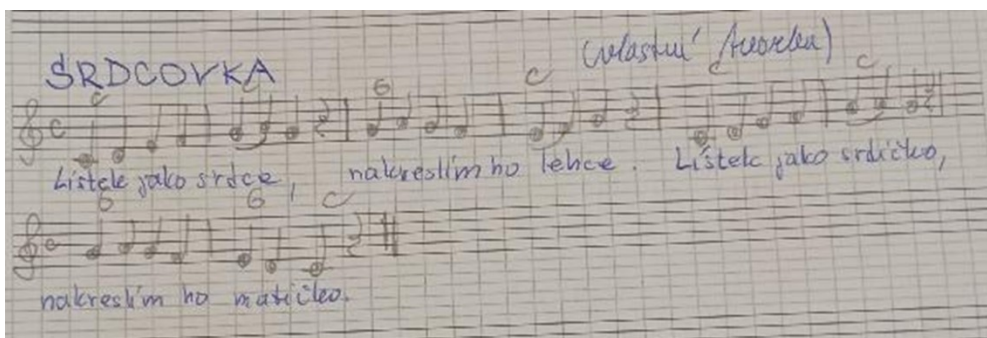 SRDCOVKA (vlastní tvorba)
C C G C C C
Lístek jako srdce, nakreslím ho lehce. Lístek jako srdíčko,
G G C
nakreslím ho maticko.